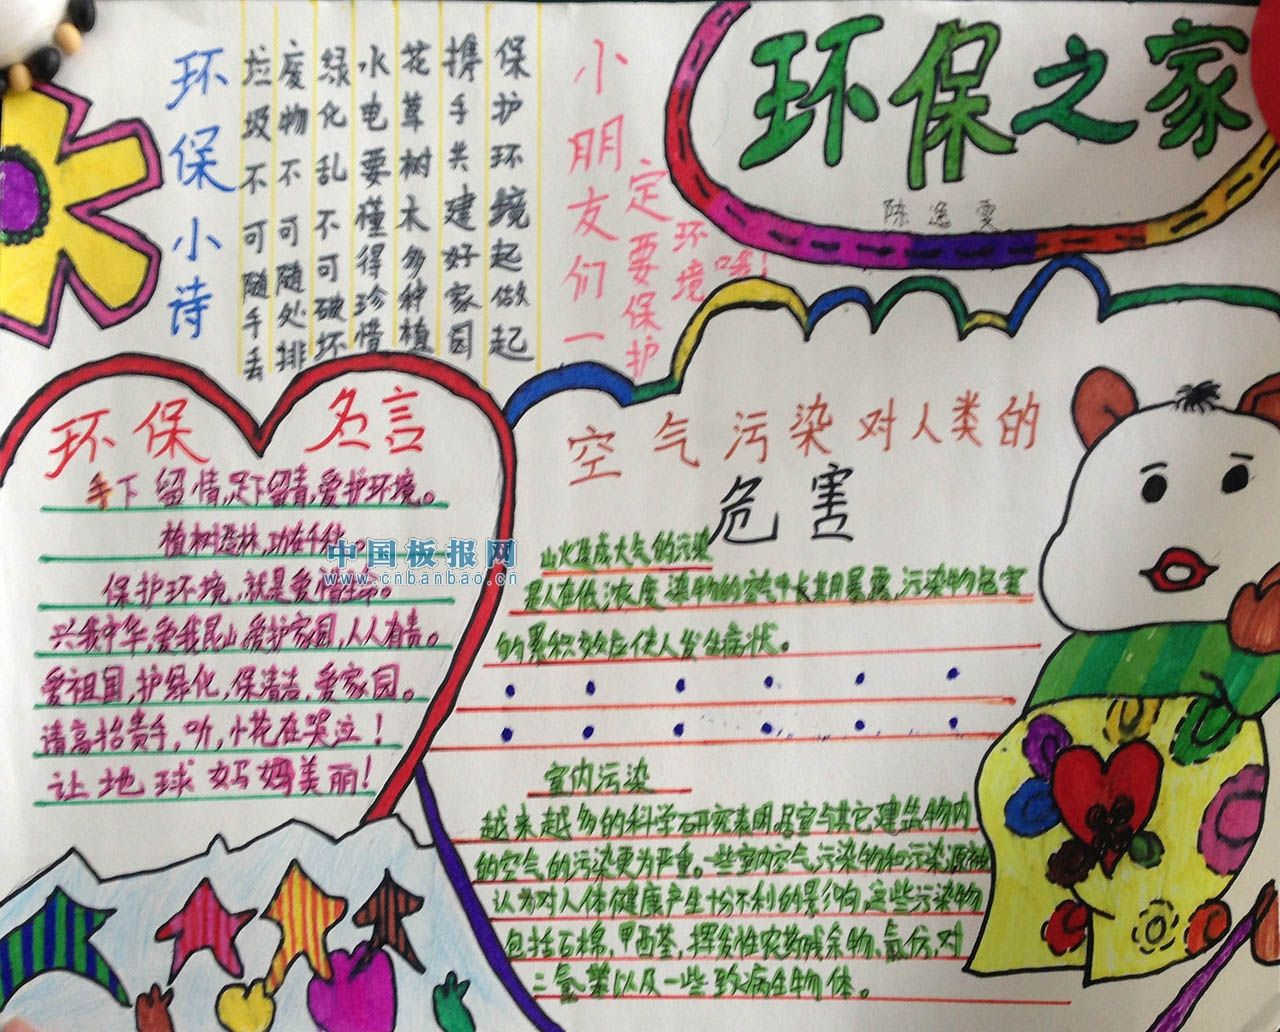 环保之家
陈逸雯
小朋友们一
定要保护
环境哦!
环保小诗
保护环境起做起
携手共建好家园
花草树木多种植
水电要懂得珍惜
绿化乱不可破坏
废物不可随处排
垃圾不可随手丢
环保 名言
手下留情,足下留青,爱护环境。
植树造林,功在千秋。
保护环境,就是爱惜生命。
兴我中华,爱我昆山,爱护家园,人人有责。
爱祖国,护绿化,保清洁,爱家园。
请高抬贵手,听,小花在哭泣!
让地球妈妈美丽!
空气污染对人类的
危害
山火造成大气的污染
是人在低浓度染物的空气中长其用暴露,污染物危害
的累积效应使人发生病状。
室内污染
越来越多的科学石开究表明,居室与其它建筑物内
的空气的污染更为严重。一些室内空气污染物和污染源被
认为对人体健康产生十份不利的影响,这些污染物
包括石棉,甲西荃,挥发性农药残余物、氯仿,对
三氯苯以及一些致病生物体。
中国板报网
www.cnbanbao.cn